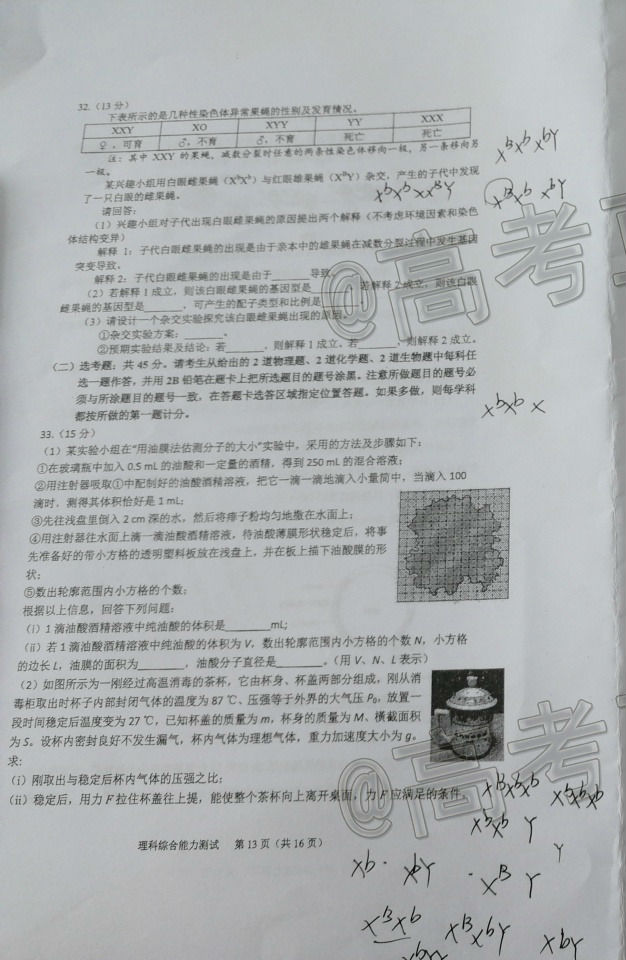 32.（13 分）
下表所示的是几种性染色体异常果蝇的性别及发育情况。
XXY XO XYY YY XXX
♀，可育 ♂，不育 ♂，不育 死亡 死亡
注：其中 XXY 的果蝇，减数分裂时任意的两条性染色体移向一极，另一条移向另
一极。
某兴趣小组用白眼雌果蝇（XᵇXᵇ）与红眼雄果蝇（XᴮY）杂交，产生的子代中发现
了一只白眼的雌果蝇。
请回答：
（1）兴趣小组对子代出现白眼雌果蝇的原因提出两个解释（不考虑环境因素和染色
体结构变异）
解释 1：子代白眼雌果蝇的出现是由于亲本中的雄果蝇在减数分裂过程中发生基因
突变导致。
解释 2：子代白眼雌果蝇的出现是由于______导致。
（2）若解释 1 成立，则该白眼雌果蝇的基因型是______，若解释 2 成立，则该白眼
雌果蝇的基因型是______、可产生的配子类型和比例是______。
（3）请设计一个杂交实验探究该白眼雌果蝇出现的原因。
①杂交实验方案：______。
②预期实验结果及结论：若______，则解释 1 成立。若______，则解释 2 成立。
（二）选考题：共 45 分。请考生从给出的 2 道物理题、2 道化学题、2 道生物题中每科任
选一题作答，并用 2B 铅笔在题卡上把所选题目的题号涂黑。注意所做题目的题号必
须与所涂题目的题号一致，在答题卡选答区域指定位置答题。如果多做，则每学科
都按所做的第一题计分。
33.（15 分）
（1）某实验小组在“用油膜法估测分子的大小”实验中，采用的方法及步骤如下：
①在玻璃瓶中加入 0.5 mL 的油酸和一定量的酒精，得到 250 mL 的混合溶液；
②用注射器吸取①中配制好的油酸酒精溶液，把它一滴一滴地滴入小量筒中，当滴入 100
滴时，测得其体积恰好是 1 mL；
③先往浅盘里倒入 2 cm 深的水，然后将痱子粉均匀地撒在水面上；
④用注射器往水面上滴一滴油酸酒精溶液，待油酸薄膜形状稳定后，将事
先准备好的带小方格的透明塑料板放在浅盘上，并在板上描下油酸膜的形
状；
⑤数出轮廓范围内小方格的个数；
根据以上信息，回答下列问题：
（i）1 滴油酸酒精溶液中纯油酸的体积是________mL；
（ii）若 1 滴油酸酒精溶液中纯油酸的体积为 V，数出轮廓范围内小方格的个数 N，小方格
的边长 L，油膜的面积为________，油酸分子直径是________。（用 V、N、L 表示）
（2）如图所示为一刚经过高温消毒的茶杯，它由杯身、杯盖两部分组成，刚从消
毒柜取出时杯子内部封闭气体的温度为 87 ℃、压强等于外界的大气压 P₀，放置一
段时间稳定后温度变为 27 ℃，已知杯盖的质量为 m，杯身的质量为 M、横截面积
为 S。设杯内密封良好不发生漏气，杯内气体为理想气体，重力加速度大小为 g。
求：
（i）刚取出与稳定后杯内气体的压强之比；
（ii）稳定后，用力 F 拉住杯盖往上提，能使整个茶杯向上离开桌面，力 F 应满足的条件。
理科综合能力测试 第 13 页（共 16 页）
XᴮXᵇ XᵇY
XᵇXᵇ XXᴮY
XᴮXᵇ XᵇY
XᵇXᵇ X
XᴮXᵇXᵇ XᵇXᵇXᵇ
XᵇXᵇ Y
Y
Xᵇ · XᵇY · XᴮY
XᴮXᵇ XᴮXᵇY XᵇY
@高考
@高考